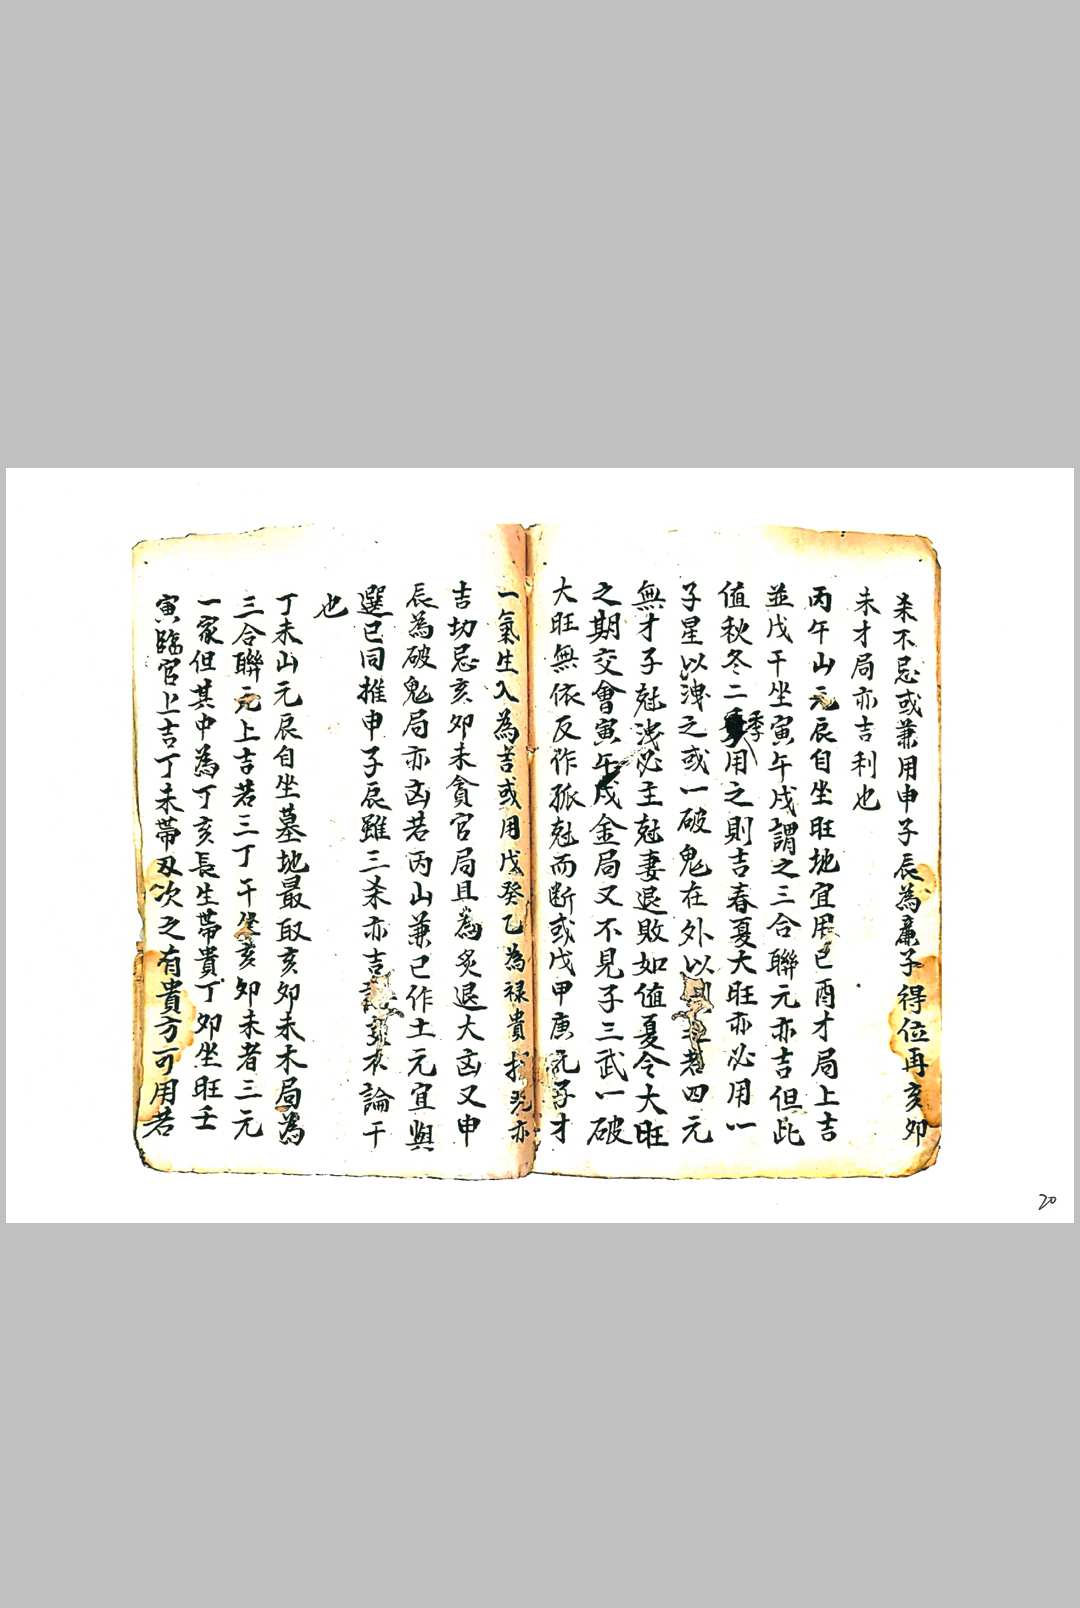 杀不忌或兼用申子辰為廉子得位再亥卯
未才局亦吉利也
丙午山元辰自坐旺地宜用巳酉才局上吉
並戊干坐寅午戌謂之三合聯元亦吉但此
值秋冬二季用之則吉春夏大旺亦必用一
子星以洩之或一破鬼在外以者四元
無才子尅洩必主尅妻退敗如值夏令大旺
之期交會寅午戌金局又不見子三武一破
大旺無依反作孤尅而断或戊甲庚子才
一氣生入為吉或用戊癸乙為禄貴亦
吉切忌亥卯未貪官局且為炙退大凶又申
辰為破鬼局亦凶若丙山兼巳作土元宜與
選巳同推申子辰雖三杀亦吉論干
也
丁未山元辰自坐墓地最取亥卯未木局為
三合聯元上吉若三丁干坐亥卯未者三元
一家但其中為丁亥長生帶貴丁卯坐旺壬
寅臨官上吉丁未帶刃次之有貴方可用若
20